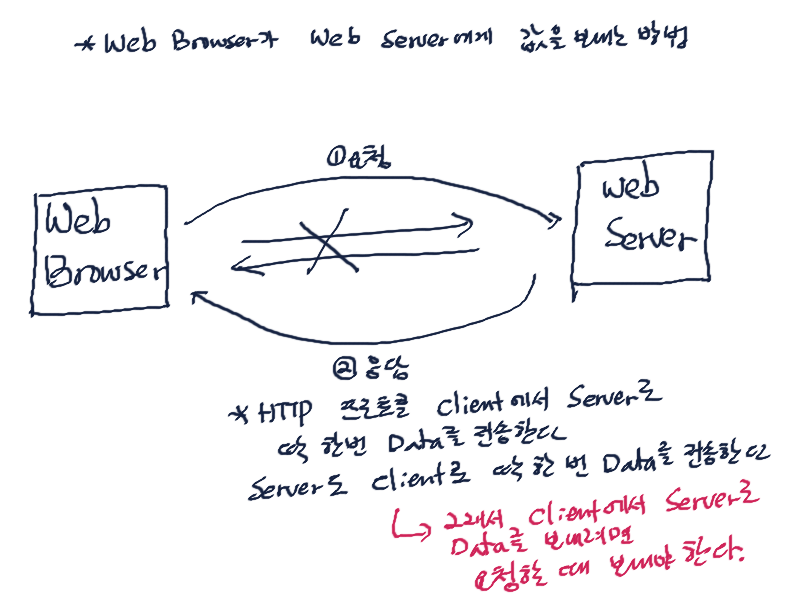 * Web Browser가 Web Server에게 값을 보내는 방법
① 요청
Web
Browser
Web
Server
② 응답
* HTTP 프로토콜 Client에서 Server로
딱 한번 Data를 전송한다
Server도 Client로 딱 한 번 Data를 전송한다
그래서 Client에서 Server로
Data를 보내려면
요청할 때 보내야 한다.